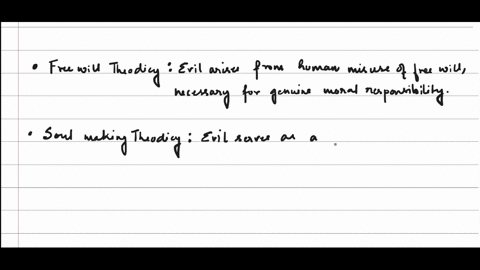 • Free will Theodicy : Evil arises from human misuse of free will,
necessary for genuine moral responsibility.
• Soul making Theodicy : Evil serves as a